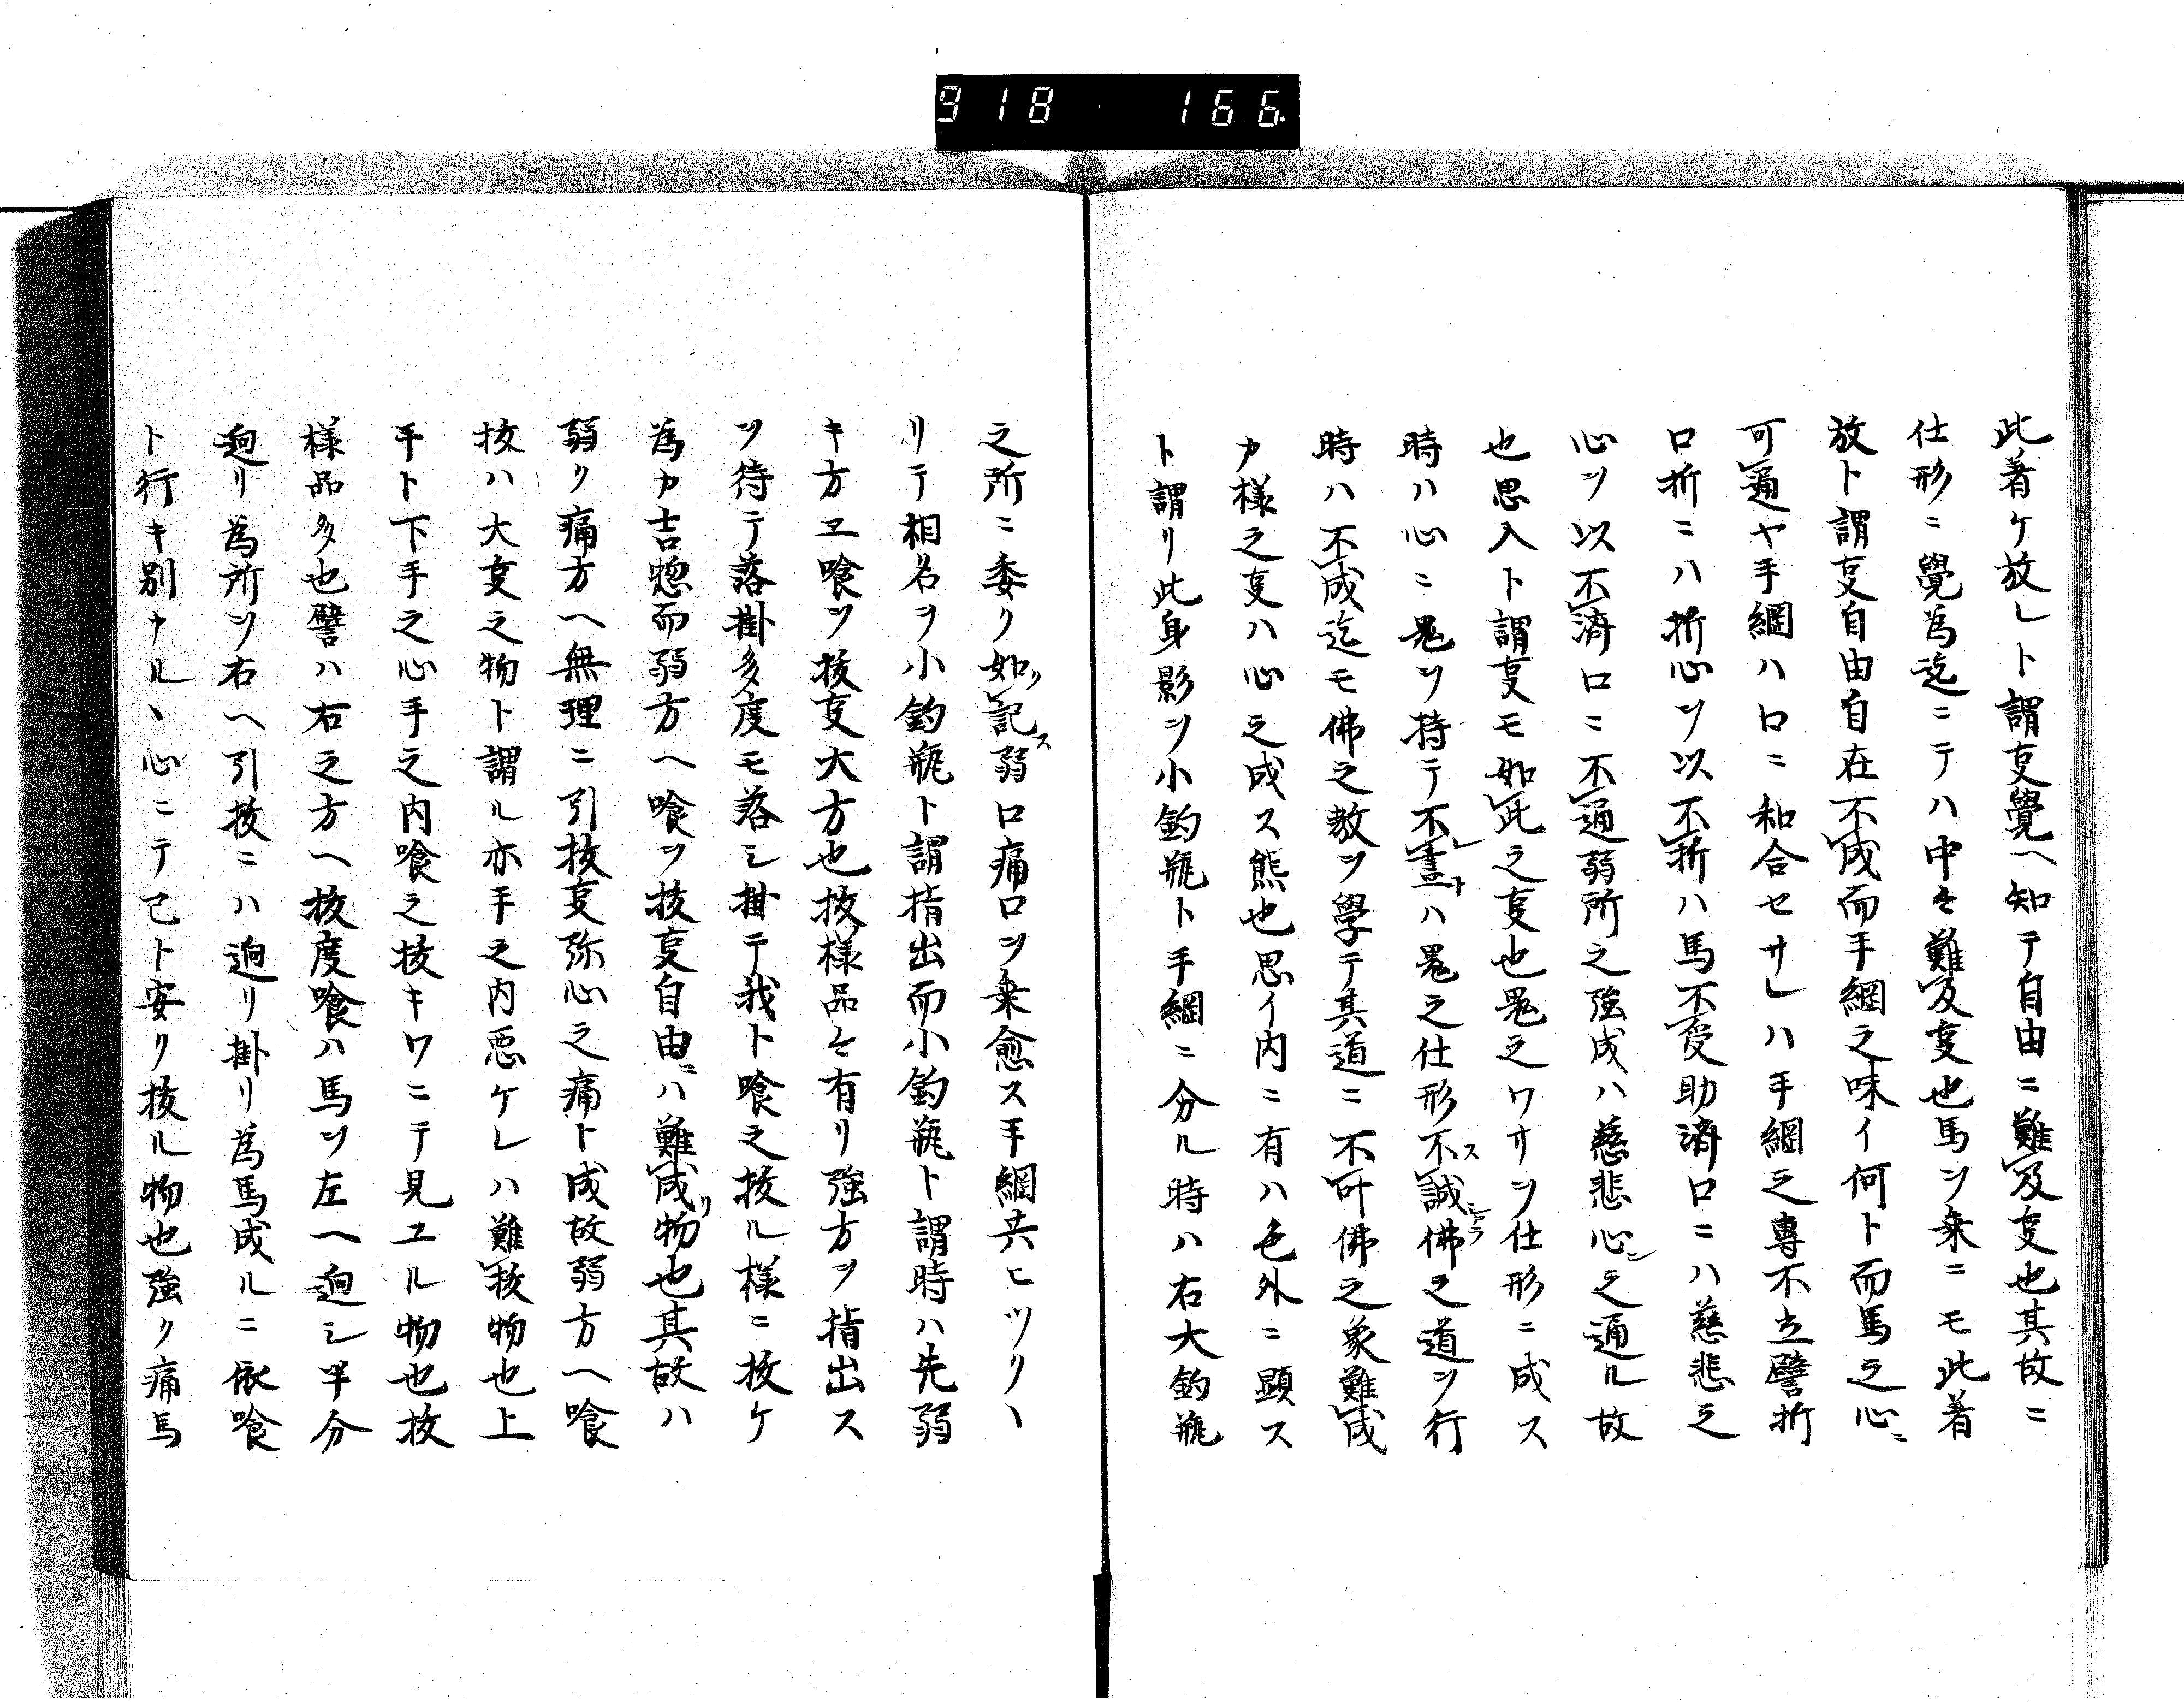 918 166
此著ケ放レト謂叓覺ヘ知テ自由ニ難及叓也其故ニ
仕形ニ覺為迄ニテハ中々難及叓也馬ヲ乗ニモ此著
放ト謂叓自由自在不成而手綱之味イ何ト而馬之心ニ
可通ヤ手綱ハ口ニ和合セサレハ手綱之専不立譬折
口折ニハ折心ヲ以不折ハ馬不受助済口ニハ慈悲之
心ヲ以不済口ニ不通弱所之強成ハ慈悲心ン之通ル故
也思入ト謂叓モ如此之叓也鬼之ワサヲ仕形ニ成ス
時ハ心ニ鬼ヲ持テ不レ畫トハ鬼之仕形不ス誠佛之道ヲ行
時ハ不成迄モ佛之教ヲ學テ其道ニ不叶佛之象難成
カ様之叓ハ心之成ス熊也思イ内ニ有ハ色外ニ顕ス
ト謂リ此身影ヲ小釣瓶ト手綱ニ分ル時ハ右大釣瓶
之所ニ委ク如ク記ス弱口痛口ヲ乗愈ス手綱共ヒツリヽ
リテ相名ヲ小釣瓶ト謂指出而小釣瓶ト謂時ハ先弱
キ方ヱ喰ヲ抜叓大方也抜様品々有リ強方ヲ指出ス
ヲ待テ落掛多度モ落シ掛テ我ト喰之抜ル様ニ抜ケ
為カ吉惣而弱方ヘ喰ヲ抜叓自由ニハ難成リ物也其故ハ
弱ク痛方ヘ無理ニ引抜叓弥心之痛ト成故弱方ヘ喰
抜ハ大叓之物ト謂ル亦手之内悪ケレハ難抜物也上
手ト下手之心手之内喰之抜キワニテ見ユル物也抜
様品多也譬ハ右之方ヘ抜度喰ハ馬ヲ左ヘ廻シ半分
廻リ為所ヲ右ヘ引抜ニハ廻リ掛リ為馬成ルニ依喰
ト行キ別ナルヽ心ニテ已ト安リ抜ル物也強ク痛馬